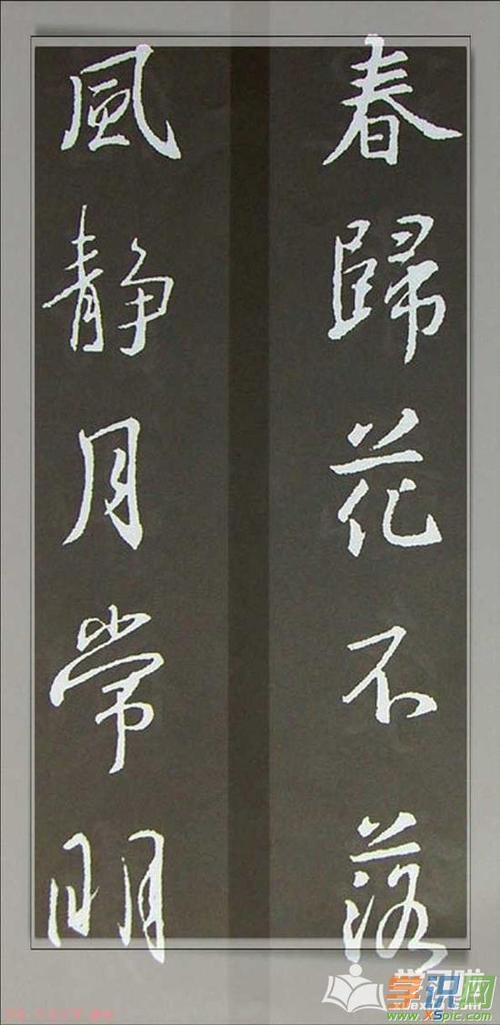 春歸花不落
風静月常明
学识网
www.xspic.com